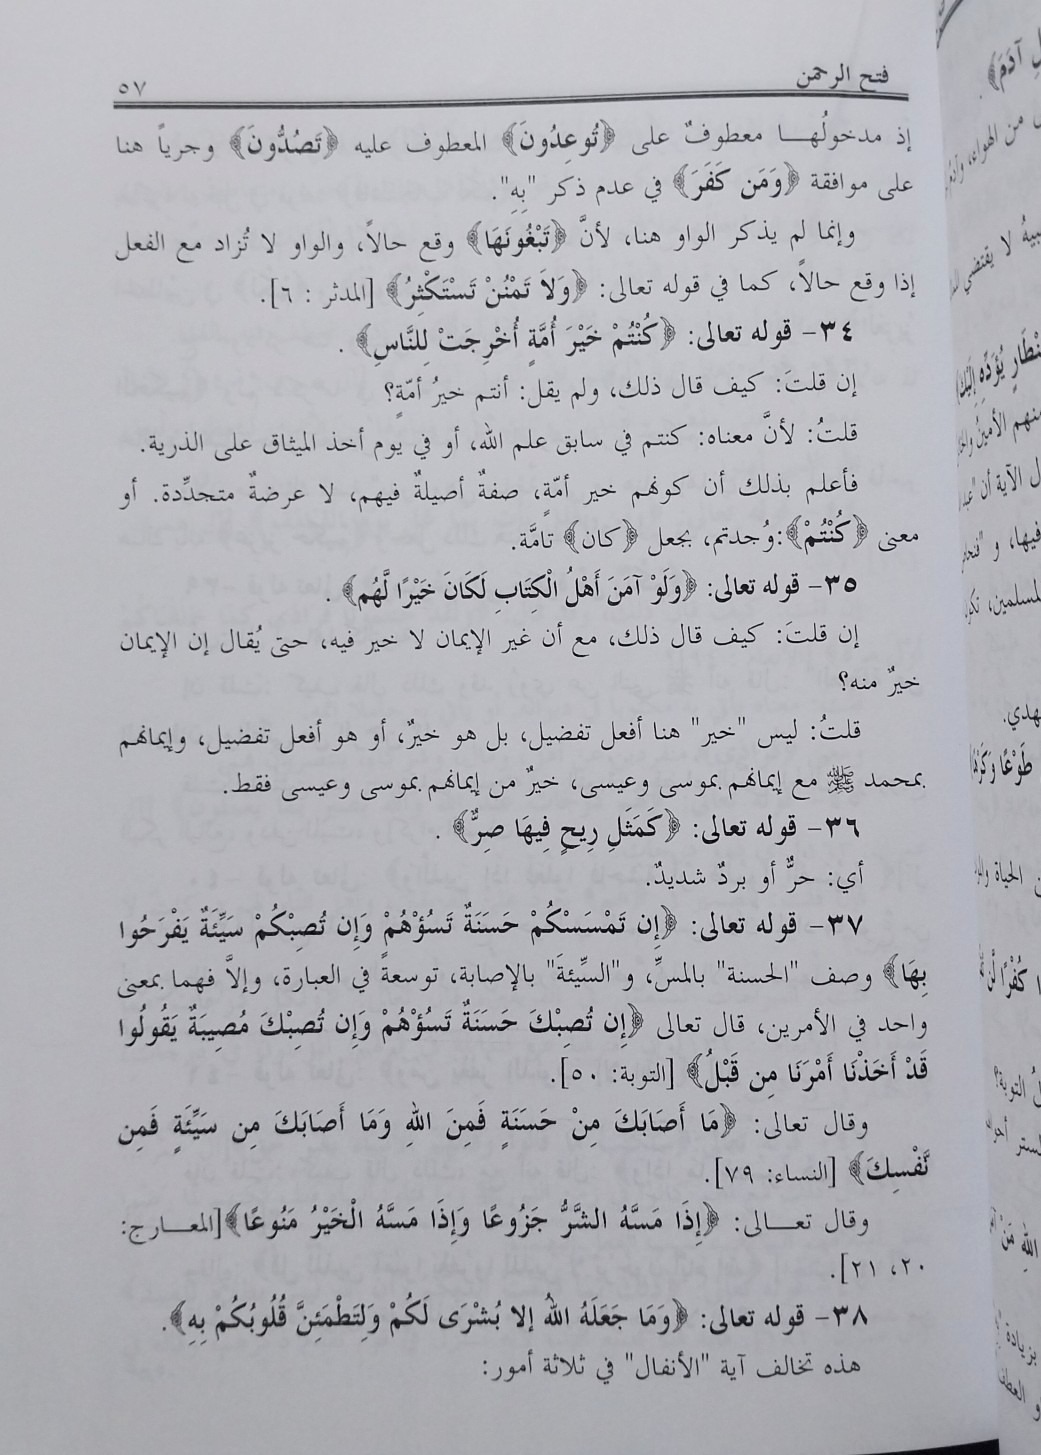 فتح الرحمن ٥٧
إذ مدخولُهـا معطوفٌ على ﴿تُوعِدُونَ﴾ المعطوف عليه ﴿تَصُدُّونَ﴾ وجرياً هنا
على موافقة ﴿وَمَن كَفَرَ﴾ في عدم ذكر "بِهِ".
وإنما لم يذكر الواو هنا، لأنَّ ﴿تَبْغُونَهَا﴾ وقع حالاً، والواو لا تُزاد مع الفعل
إذا وقع حالاً، كما في قوله تعالى: ﴿وَلَا تَمْنُنْ تَسْتَكْثِرُ﴾ [المدثر : ٦].
٣٤- قوله تعالى: ﴿كُنْتُمْ خَيْرَ أُمَّةٍ أُخْرِجَتْ لِلنَّاسِ﴾ .
إن قلتَ: كيف قال ذلك، ولم يقل: أنتم خيرُ أمّةٍ؟
قلتُ: لأنَّ معناه: كنتم في سابق علم الله، أو في يوم أخذ الميثاق على الذرية.
فأعلم بذلك أن كونهم خير أمّةٍ، صفةٌ أصيلةٌ فيهم، لا عرضةٌ متجدِّدة. أو
معنى ﴿كُنْتُمْ﴾:وُجدتم، بجعل ﴿كان﴾ تامَّة.
٣٥- قوله تعالى: ﴿وَلَوْ آمَنَ أَهْلُ الْكِتَابِ لَكَانَ خَيْرًا لَّهُم﴾ .
إن قلتَ: كيف قال ذلك، مع أن غير الإيمان لا خير فيه، حتى يُقال إن الإيمان
خيرٌ منه؟
قلتُ: ليس "خير" هنا أفعل تفضيل، بل هو خيرٌ، أو هو أفعل تفضيل، وإيمانهم
بمحمد ﷺ مع إيمانهم بموسى وعيسى، خيرٌ من إيمانهم بموسى وعيسى فقط.
٣٦- قوله تعالى: ﴿كَمَثَلِ رِيحٍ فِيهَا صِرٌّ﴾ .
أي: حرٌّ أو بردٌ شديدٌ.
٣٧- قوله تعالى: ﴿إِن تَمْسَسْكُمْ حَسَنَةٌ تَسُؤْهُمْ وَإِن تُصِبْكُمْ سَيِّئَةٌ يَفْرَحُوا
بِهَا﴾ وصف "الحسنة" بالمسِّ، و"السيِّئةَ" بالإصابة، توسعةً في العبارة، وإلاَّ فهما بمعنى
واحد في الأمرين، قال تعالى ﴿إِن تُصِبْكَ حَسَنَةٌ تَسُؤْهُمْ وَإِن تُصِبْكَ مُصِيبَةٌ يَقُولُوا
قَدْ أَخَذْنَا أَمْرَنَا مِن قَبْلُ﴾ [التوبة: ٥٠].
وقال تعالى: ﴿مَا أَصَابَكَ مِنْ حَسَنَةٍ فَمِنَ اللهِ وَمَا أَصَابَكَ مِن سَيِّئَةٍ فَمِن
نَّفْسِكَ﴾ [النساء: ٧٩].
وقال تعـالى: ﴿إِذَا مَسَّهُ الشَّرُّ جَزُوعًا وَإِذَا مَسَّهُ الْخَيْرُ مَنُوعًا﴾[المعـارج:
٢٠، ٢١].
٣٨- قوله تعالى: ﴿وَمَا جَعَلَهُ اللهُ إلا بُشْرَى لَكُمْ وَلِتَطْمَئِنَّ قُلُوبُكُمْ بِهِ﴾.
هذه تخالف آية "الأنفال" في ثلاثة أمور: